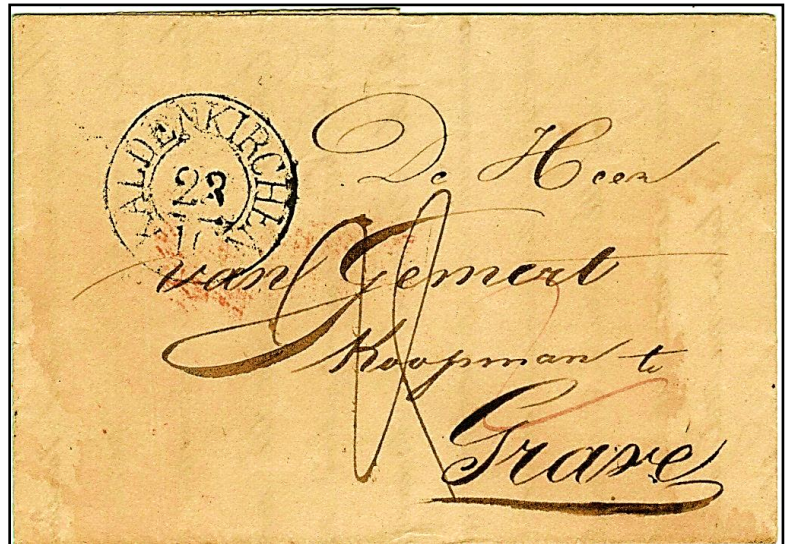 KALDENKIRCHEN
De Heer
van Gemert
Koopman te
Grave